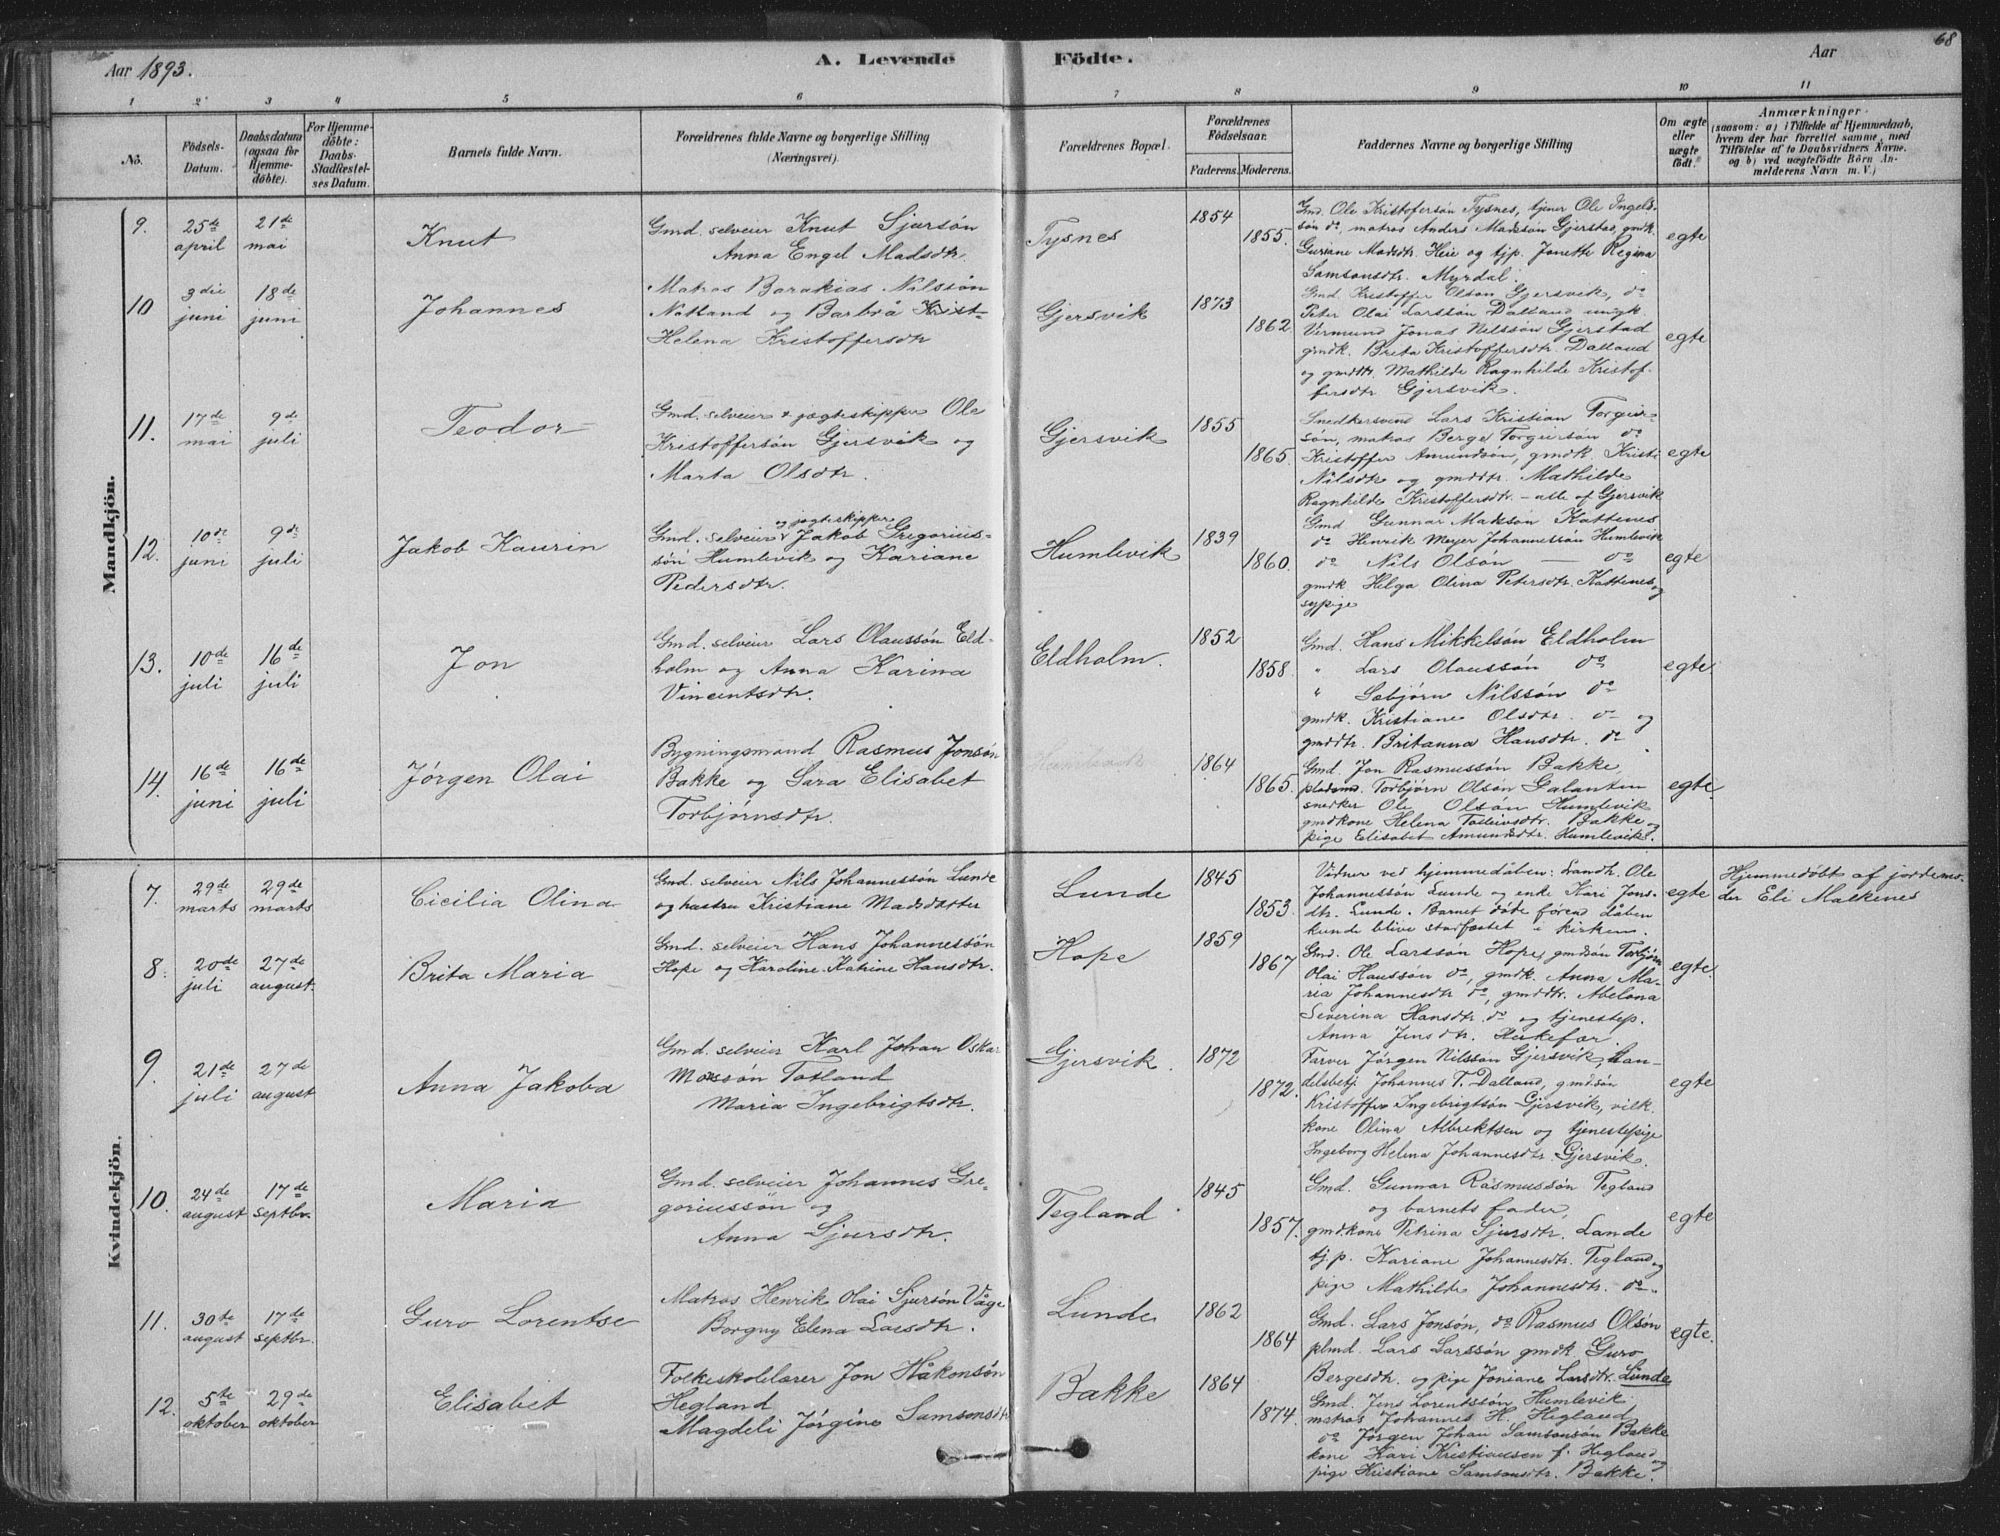 68
Aar 1893. A. Levende Födte. Aar
1 2 3 4 5 6 7 8 9 10 11
Nö.
Födsels-Datum.
Daabsdatum (ogsaa för Hjemmedöbte).
For Hjemmedöbte: Daabs-Stadfæstelses Datum.
Barnets fulde Navn.
Forældrenes fulde Navne og borgerlige Stilling (Næringsvei).
Forældrenes Bopæl.
Forældrenes Födselsaar.
Faderens. Moderens.
Faddernes Navne og borgerlige Stilling
Om ægte eller uægte födt.
Anmærkninger (saasom: a) i Tilfælde af Hjemmedaab, hvem der har forrettet samme, med Tilföielse af to Daabsvidners Navne, og b) ved uægtefödte Börn Anmelderens Navn m. V.)
Mandkjön.
9. 25de april 21de mai Knut
Gmd. selveier Knut Sjursön
Anna Engel Madsdtr.
Tysnes 1854 1855.
Gmd. Ole Kristofersön Tysnes, tjener Ole Ingels-
sön do, matros Anders Madsön Gjerstad, gmdk.
Guriane Madsdtr. Heie og tjp. Jonette Regina
Samsonsdtr. Myrdal.
egte
10 3die juni 18de juni Johannes
Matros Barakias Nilssön
Nötland og Barbrå Krist-
Helena Kristoffersdtr
Gjersvik 1873 1862
Gmd. Kristoffer Olson Gjersvik, do
Peter Olai Larssön Dalland ungk
Vermund Jonas Nilssön Gjerstad
gmdk. Brita Kristoffersdtr. Dalland
og gmdtr. Mathilde Ragnhilde Kristof-
fersdtr Gjersvik.
egte
11. 17de mai 9de juli Teodor
Gmd. selveier & jægteskipper Ole
Kristoffersön Gjersvik og
Marta Olsdtr.
Gjersvik 1855 1865.
Snedkersvend Lars Kristian Torgier-
sön, matros Berge Torgersön do
Kristoffer Amundsön, gmdk. Kristi
Nilsdtr og gmddtr. Mathilde
Ragnhilde Kristoffersdtr. – alle af Gjersvik
egte
12. 10de juni 9de juli Jakob Kaurin
og jægteskipper
Gmd. selveier Jakob Gregorius-
sön Humlevik og Kariane
Pedersdtr.
Humlevik 1839 1860.
Gmd Gunnar Madsön Kattenes
do Henrik Meyer Johannessön Humlevik
do Nils Olsön — do
gmdk. Helga Olina Petersdtr. Kattenes og
sypige
egte
13. 10de juli 16de juli Jon
Gmd. selveier Lars Olaussön Eld-
holm og Anna Karina
Vincentsdtr.
Eldholm. 1852 1858.
Gmd. Hans Mikkelsön Eldholm
" Lars Olaussön do
" Sebjörn Nilssön do
gmdk. Kristiane Olsdtr. do og
gmddtr. Britanna Hansdtr. do.
egte.
14. 16de juni 16de juli Jörgen Olai
Bygningsmand Rasmus Jonsön
Bakke og Sara Elisabet
Torbjörnsdtr.
Humlevik 1864 1865.
Gmd. Jon Rasmussön Bakke
pladsmd. Torbjörn Olsön Galanten
snedker Ole Olsön Humlevik
gmdkone Helena Tolleivsdtr. Bakke og
pige Elisabet Amundsdtr. Humlevik.
egte.
Kvindekjön.
7. 29de marts 29de marts Cicilia Olina
Gmd. selveier Nils Johannessön Lunde
og hustru Kristiane Madsdatter
Lunde 1845 1853.
Vidner ved hjemmedåben: Landh. Ole
Johannessön Lunde og enke Kari Jons-
dtr. Lunde. Barnet döde förend dåben
kunde blive stadfæstet i kirken.
egte
Hjemmedöbt af jordemo-
der Eli Malkenes
8. 20de juli 27de august. Brita Maria
Gmd. selveier Hans Johannessön
Hope og Karoline Katrine Hansdtr.
Hope 1859 1867
Gmd. Ole Larssön Hope, gmdsön Torbjörn
Olai Hanssön do, gmdk. Anna Ma-
ria Johannesdtr do, gmddtr. Abelona
Severina Hansdtr. do og tjenestep.
Anna Jensdtr.
egte.
9. 21de juli 27de august Anna Jakoba
Gmd. selveier Karl Johan Oskar
Monssön Totland
Maria Ingebrigtsdtr.
Gjersvik. 1872 1872.
Farver Jörgen Nilssön Gjersvik, han-
delsbetj. Johannes T. Dalland, gmdsön
Kristoffer Ingebrigtsön Gjersvik, vilk.
kone Olina Albrektsen og tjenestepige
Ingeborg Helena Johannesdtr. Gjersvik.
egte
10. 24de august 17de septbr. Maria
Gmd. selveier Johannes Gre-
goriussön og
Anna Sjursdtr.
Tegland 1845 1857.
Gmd. Gunnar Rasmussön Tegland
og barnets fader,
gmdkone Petrina Sjursdtr. Lande
tj.p. Kariane Johannesdtr. Tegland og
pige Mathilde Johannesdtr. do.
egte
11. 30te august 17de septbr. Guro Lorentse
Matros Henrik Olai Sjursön Våge
Borgny Elena Larsdtr.
Lunde 1862 1864
Gmd. Lars Jonsön, do Rasmus Olsön
plmd. Lars Larssön gmdk. Guro
Bergesdtr. og pige Joniane Larsdtr. Lunde
egte.
12. 5te oktober 29de oktober Elisabet
Folkeskolelærer Jon Håkonsön
Hegland
Magdeli Jörgine Samsonsdtr
Bakke 1864 1874.
Gmd. Jens Lorentssön Humlevik
matros Johannes H. Hegland
do Jörgen Johan Samsonsön Bakke
kone Kari Kristiansen f. Hegland og
pige Kristiane Samsonsdtr. Bakke.